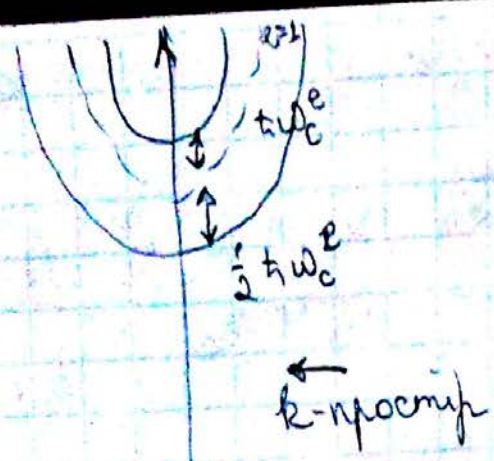 l=1
ħω_c^e
½ ħω_c^e
k-простір